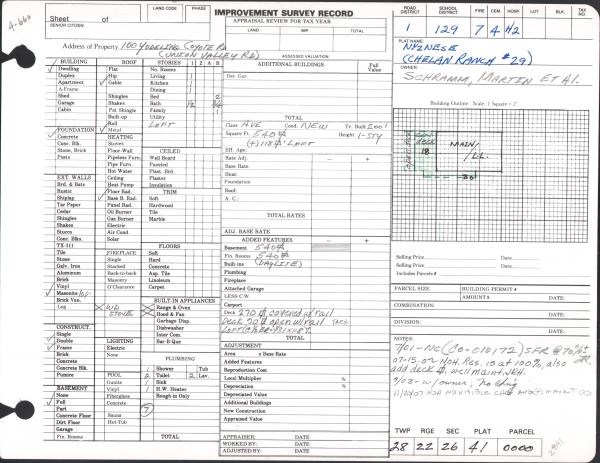 IMPROVEMENT SURVEY RECORD
Sheet of
SENIOR CITIZEN
LAND CODE
PHASE
APPRAISAL REVIEW FOR TAX YEAR
LAND
IMP
TOTAL
Address of Property 100 YODELING COYOTE RD
(UNION VALLEY RD)
ASSESSED VALUATION
ROAD DISTRICT
SCHOOL DISTRICT
FIRE
CEM.
HOSP.
LOT
BLK.
TAX NO.
1 129 7 4 H2
PLAT NAME:
NYANESE
(CHELAN RANCH #29)
OWNER:
SCHRAMM, MARTIN ET AL.
BUILDING
Dwelling
Duplex
Apartment
A-Frame
Shed
Garage
Cabin
ROOF
Flat
Hip
Gable
Shingles
Shakes
Pat Shingle
Built-up
Roll
Metal
STORIES
No. Rooms
Living
Kitchen
Dining
Bed
Bath
Family
Utility
LOFT
FOUNDATION
Concrete
Conc. Blk.
Stone, Brick
Posts
HEATING
Stoves
Floor Furn.
Pipeless Furn.
Pipe Furn.
Hot Water
Heat Pump
Floor Rad.
Base B. Rad.
Panel Rad.
Oil Burner
Gas Burner
Electric
Air Cond.
Solar
CEILED
Wall Board
Paneled
Plast. Brd.
Plaster
Insulation
TRIM
Soft
Hardwood
Tile
Marble
EXT. WALLS
Brd. & Bats
Rustic
Shiplap
Tar Paper
Cedar
Shingles
Aluminum
Shakes
Stucco
Conc. Blks.
TE-111
Tile
Stone
Galv. Iron
Stacked
Brick
Vinyl
Masonite
Brick Ven.
Log
FIREPLACE
Single
Stacked
Back-to-Back
Masonry
O'Clearance
WD STOVE
FLOORS
Soft
Hard
Concrete
Asp. Tile
Linoleum
Carpet
BUILT-IN APPLIANCES
Range & Oven
Hood & Fan
Garbage Disp.
Dishwasher
Inter Com.
Bar-B-Que
CONSTRUCT.
Single
Double
Frame
Brick
Concrete
Pumice
LIGHTING
Electric
None
POOL
Gunite
Vinyl
Fiberglass
Concrete
Sauna
Hot-Tub
PLUMBING
Shower
Tub
2 Toilet 2 Lav.
Sink
H.W. Heater
Rough-in Only
BASEMENT
None
Full
Part
Concrete Floor
Dirt Floor
Garage
Fin. Rooms
TOTAL
ADDITIONAL BUILDINGS
Full Value
Det. Gar.
TOTAL
Class AVE Cond. NEW Yr. Built 2001
Height 1-STY
(+) 118 LOFT
Eff. Age:
Rate Adj.
Base Rate
Heat:
Foundation
Roof:
A. C.:
TOTAL RATES
ADJ. BASE RATE
ADDED FEATURES
Basement 540
Fin. Rooms 540
Built-ins (DAYLITE)
Plumbing
Fireplace
Attached Garage
LESS C.W.
Carport
Deck 270 covered w/rail
TOTAL
ADJUSTMENT
Area x Base Rate
Added Features
Reproduction Cost
Local Multiplier %
Depreciation %
Depreciated Value
Additional Buildings
New Construction
Appraised Value
APPRAISER: DATE
WORKED BY: DATE
ADJUSTED BY: DATE
Building Outline: Scale, 1 Square = 2'
MAIN/
18
30
Selling Price/Date
Selling Price/Date
Includes Parcels #
PARCEL SIZE:
BUILDING PERMIT #
AMOUNT $
DATE:
COMBINATION:
DATE:
DIVISION:
DATE:
NOTES:
add deck well maint. NKH.
9/03- w/owner; no chng
TWP RGE SEC PLAT PARCEL
28 22 26 41 0000